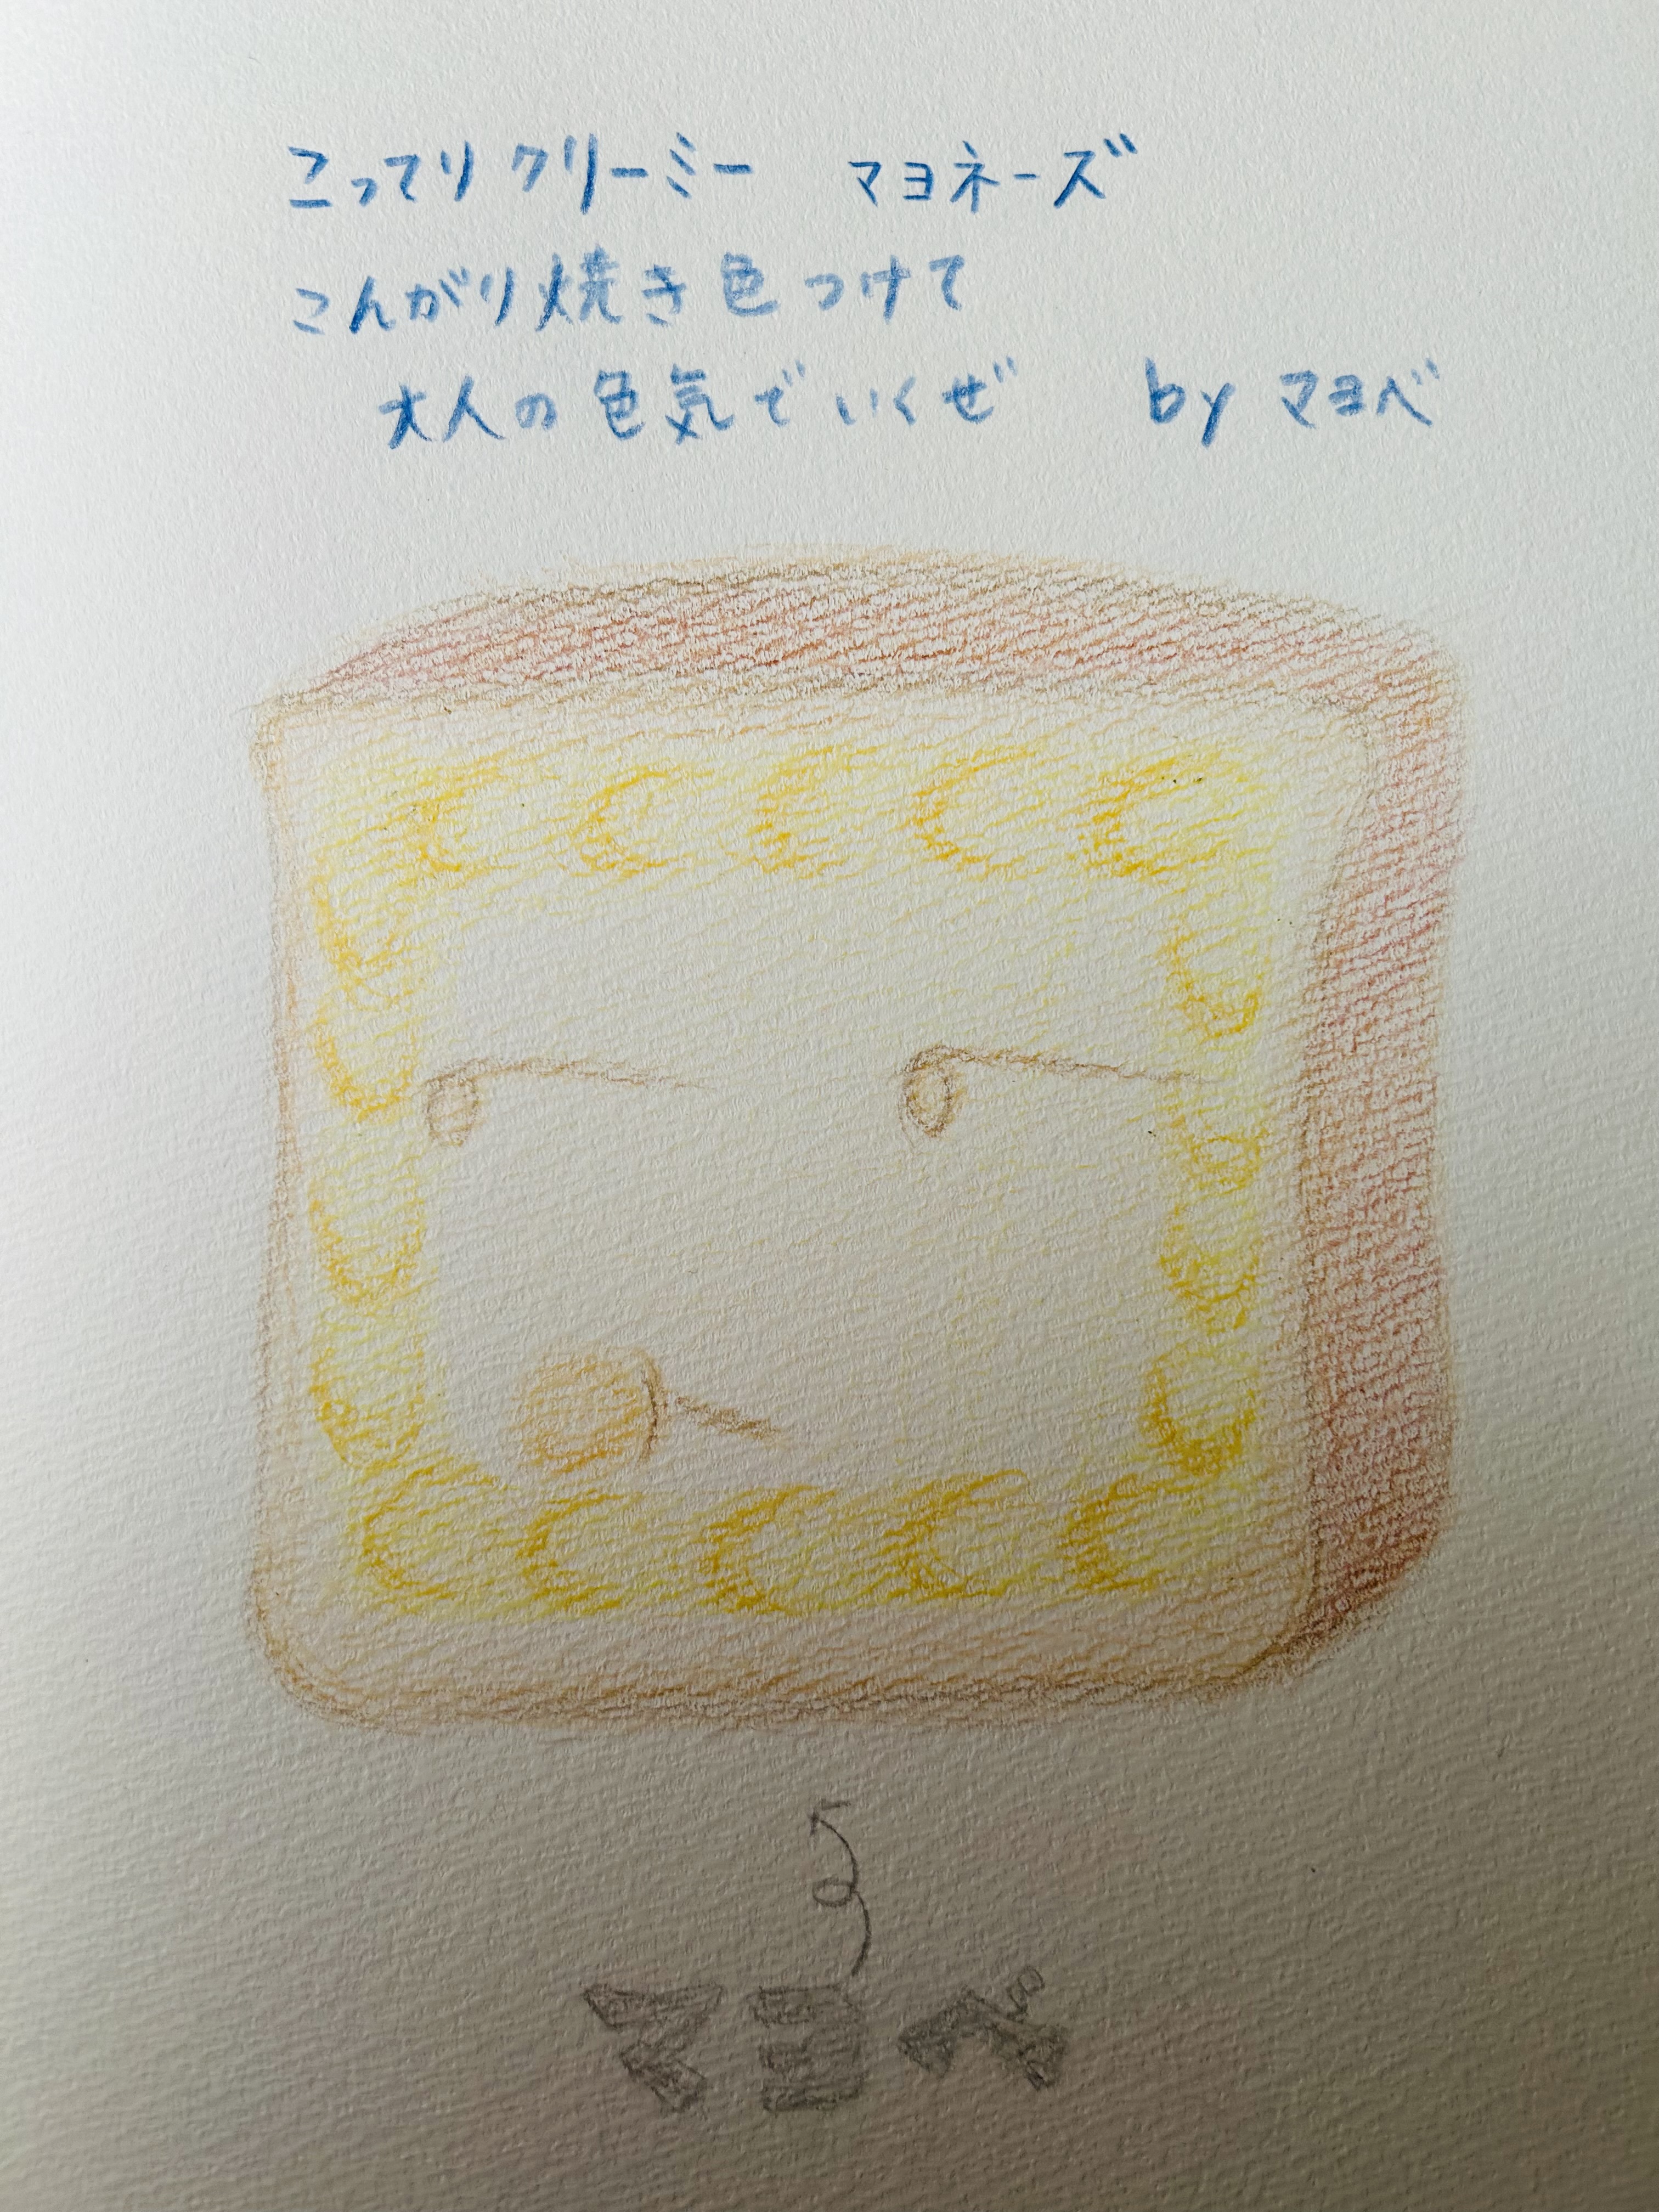 こってりクリーミー　マヨネーズ
こんがり焼き色つけて
大人の色気でいくぜ　by マヨベ
マヨベ